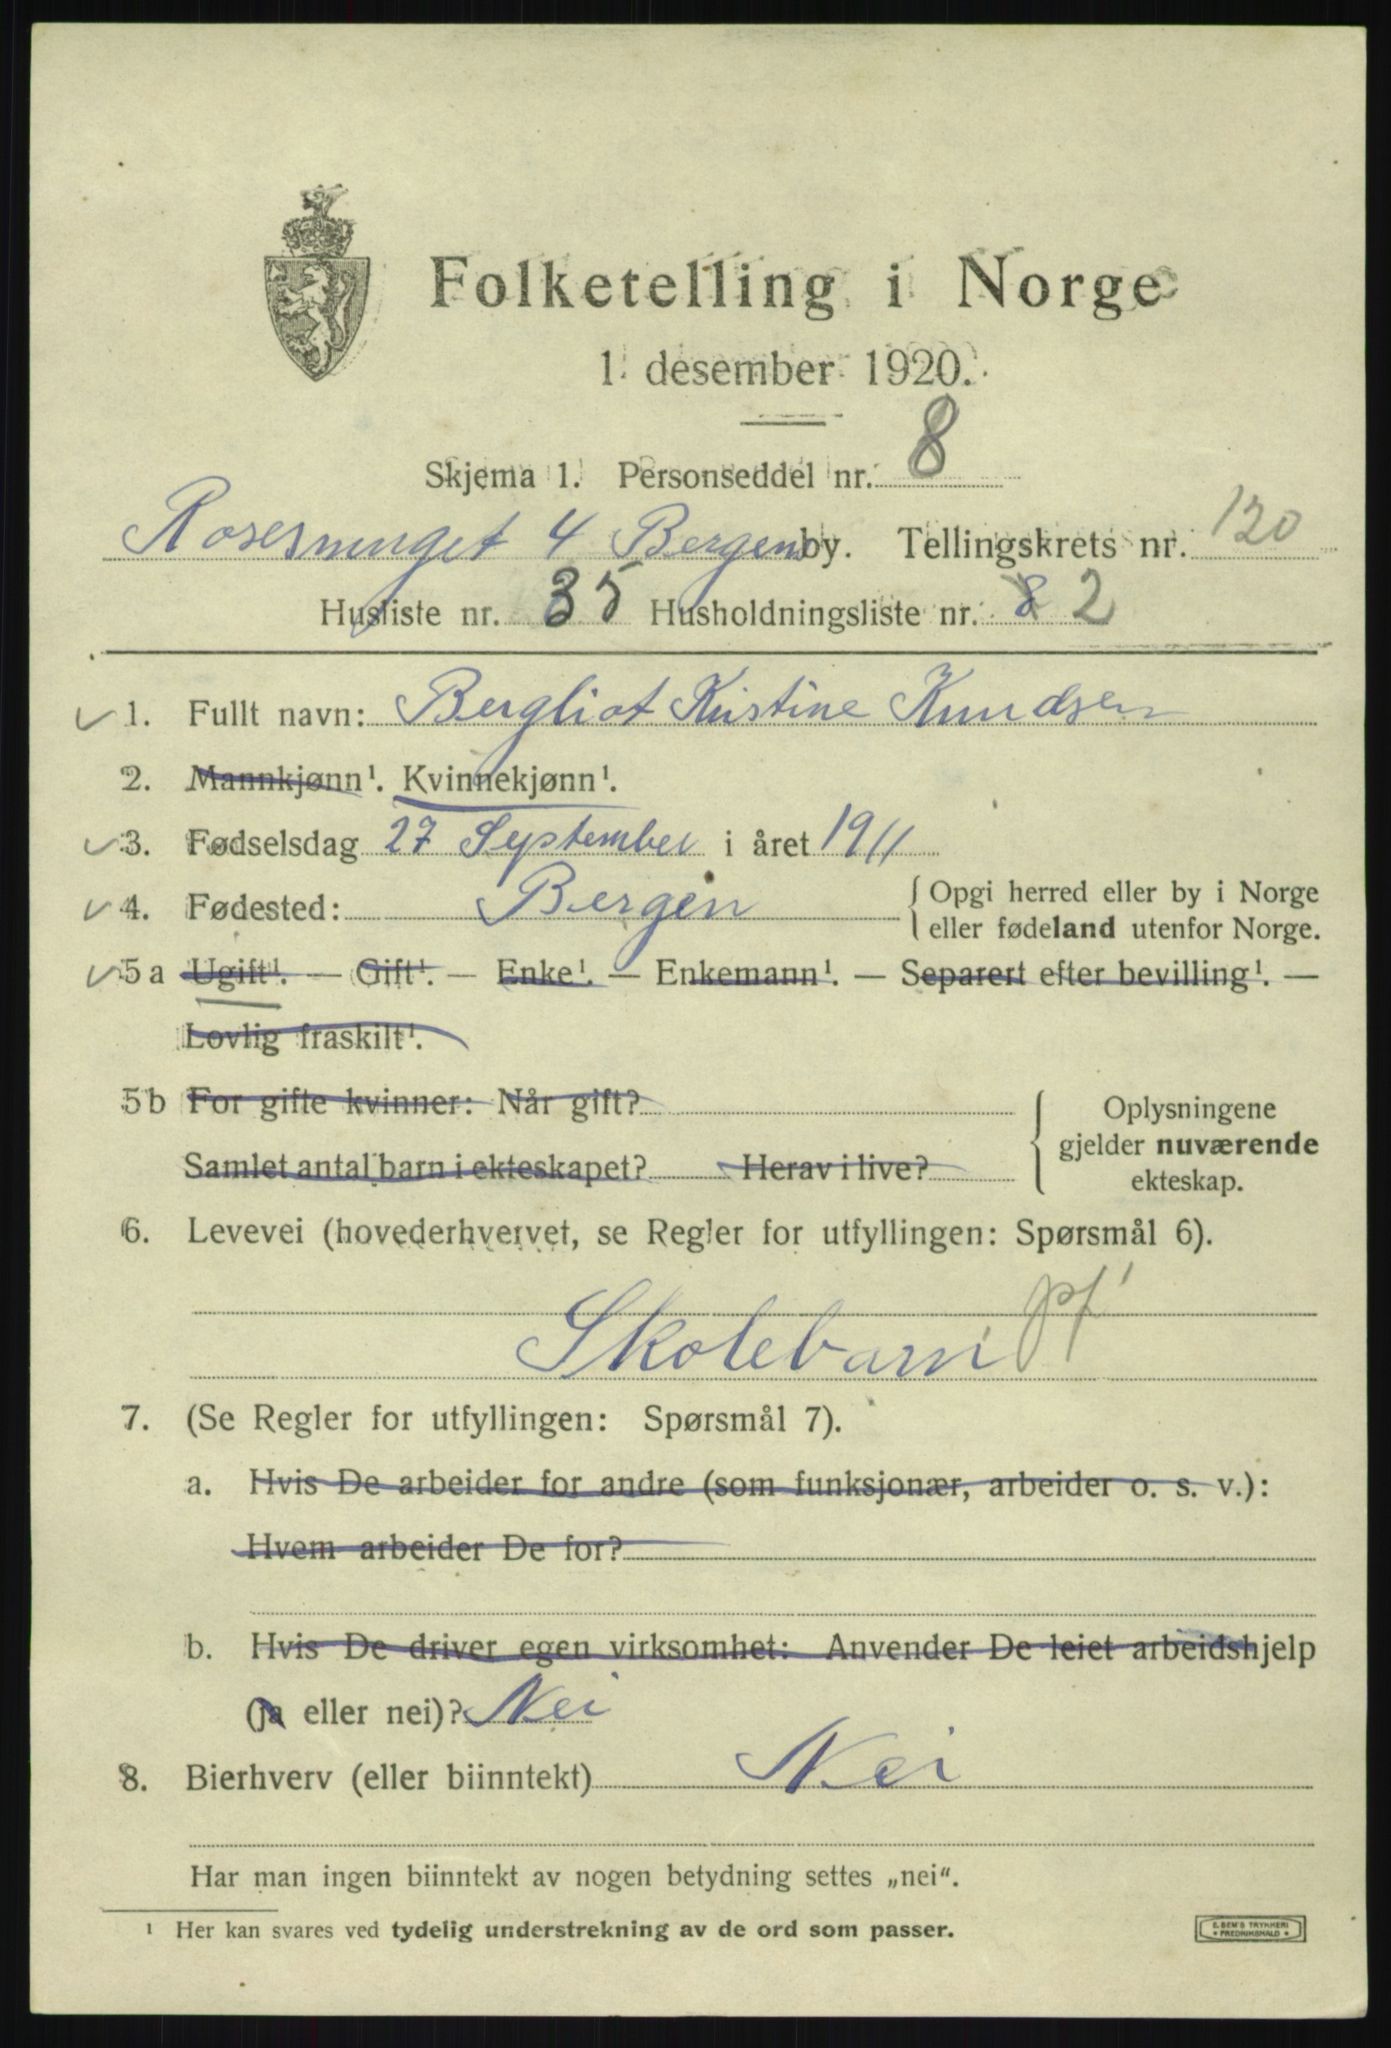 Folketelling i Norge
1. desember 1920.
Skjema 1. Personseddel nr. 8
4 Bergen by. Tellingskrets nr. 120
Husliste nr. 35 Husholdningsliste nr. 8 2
1. Fullt navn: Bergliot Kristine Knudsen
2. Mannkjønn¹. Kvinnekjønn¹.
3. Fødselsdag 27 September i året 1911
4. Fødested: Bergen
{ Opgi herred eller by i Norge
eller fødeland utenfor Norge.
5a Ugift¹. — Gift¹. — Enke¹. — Enkemann¹. — Separert efter bevilling¹. —
Lovlig fraskilt¹.
5b For gifte kvinner: Når gift?
Samlet antal barn i ekteskapet? Herav i live?
{ Oplysningene
gjelder nuværende
ekteskap.
6. Levevei (hovederhvervet, se Regler for utfyllingen: Spørsmål 6).
Skolebarn pf
7. (Se Regler for utfyllingen: Spørsmål 7).
a. Hvis De arbeider for andre (som funksjonær, arbeider o. s. v.):
Hvem arbeider De for?
b. Hvis De driver egen virksomhet: Anvender De leiet arbeidshjelp
(ja eller nei)? Nei
8. Bierhverv (eller biinntekt) Nei
Har man ingen biinntekt av nogen betydning settes „nei“.
¹ Her kan svares ved tydelig understrekning av de ord som passer.
E. SEM'S TRYKKERI
• FREDRIKSHALD •